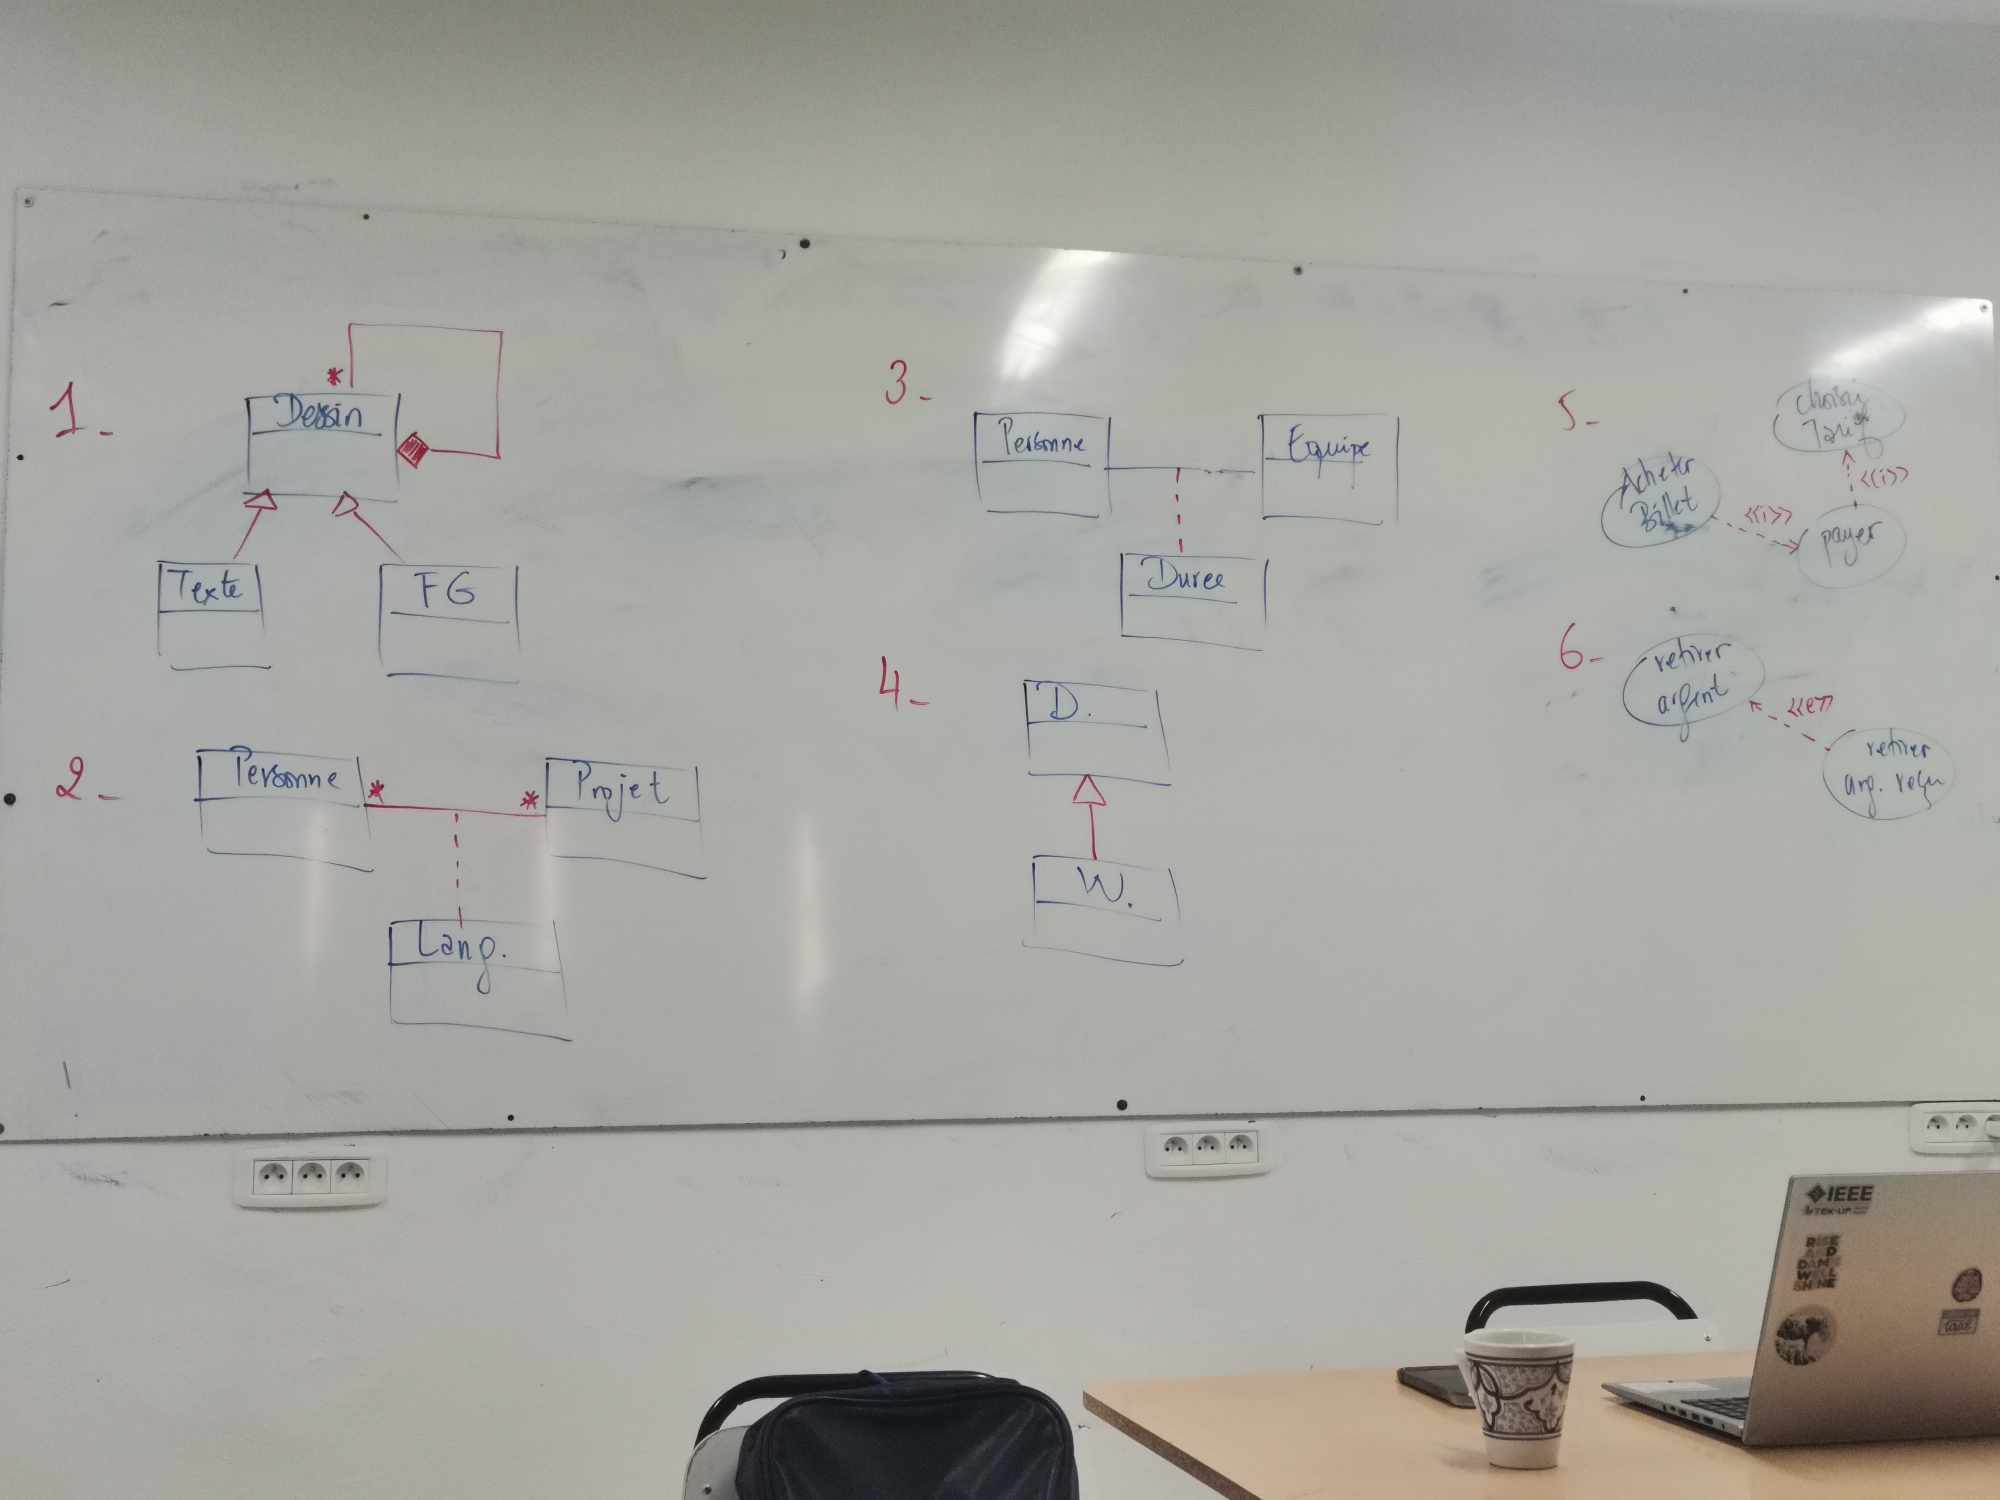 1-
*
Dessin
Texte
FG
2-
Personne
*
*
Projet
Lang.
3-
Personne
Equipe
Duree
4-
D.
W.
5-
choisir
Tarif
<<i>>
Acheter
Billet
<<i>>
payer
6-
retirer
argent
<<e>>
retirer
arg. reçu
IEEE
TEK-UP
RISE
AND
WELL
SHINE